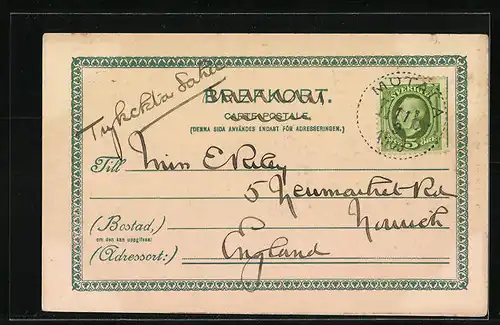 BREFKORT.
CARTE POSTALE.
(DENNA SIDA ANVÄNDES ENDAST FÖR ADRESSERINGEN.)
SVERIGE
5 ÖRE
Till Miss E Riley
5 Newmarket Rd
(Bostad,) Norwich
om den kan uppgifvas:
(Adressort:) England